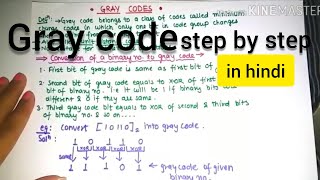 GRAY CODES
KINEMASTER
Def": → Gray code belongs to a class of codes called minimum
change codes in which only one bit in code group changes
Gray code step by step
in hindi
→ Conversion of a binary no. to gray code →
1. First bit of gray code is same as first bit of
2. Second bit of gray code equals to XOR of first
bit of binary no. i.e it will be 1 if binary bits
different & 0 if they are same.
3. Third gray code bit equals to XOR of second & third bits
of binary no. & so on.....
eg: Convert [10110]₂ into gray code.
Sol":
1 0 1 1 0
same XOR XOR XOR XOR
1 1 1 0 1 ← gray code of given
binary no.